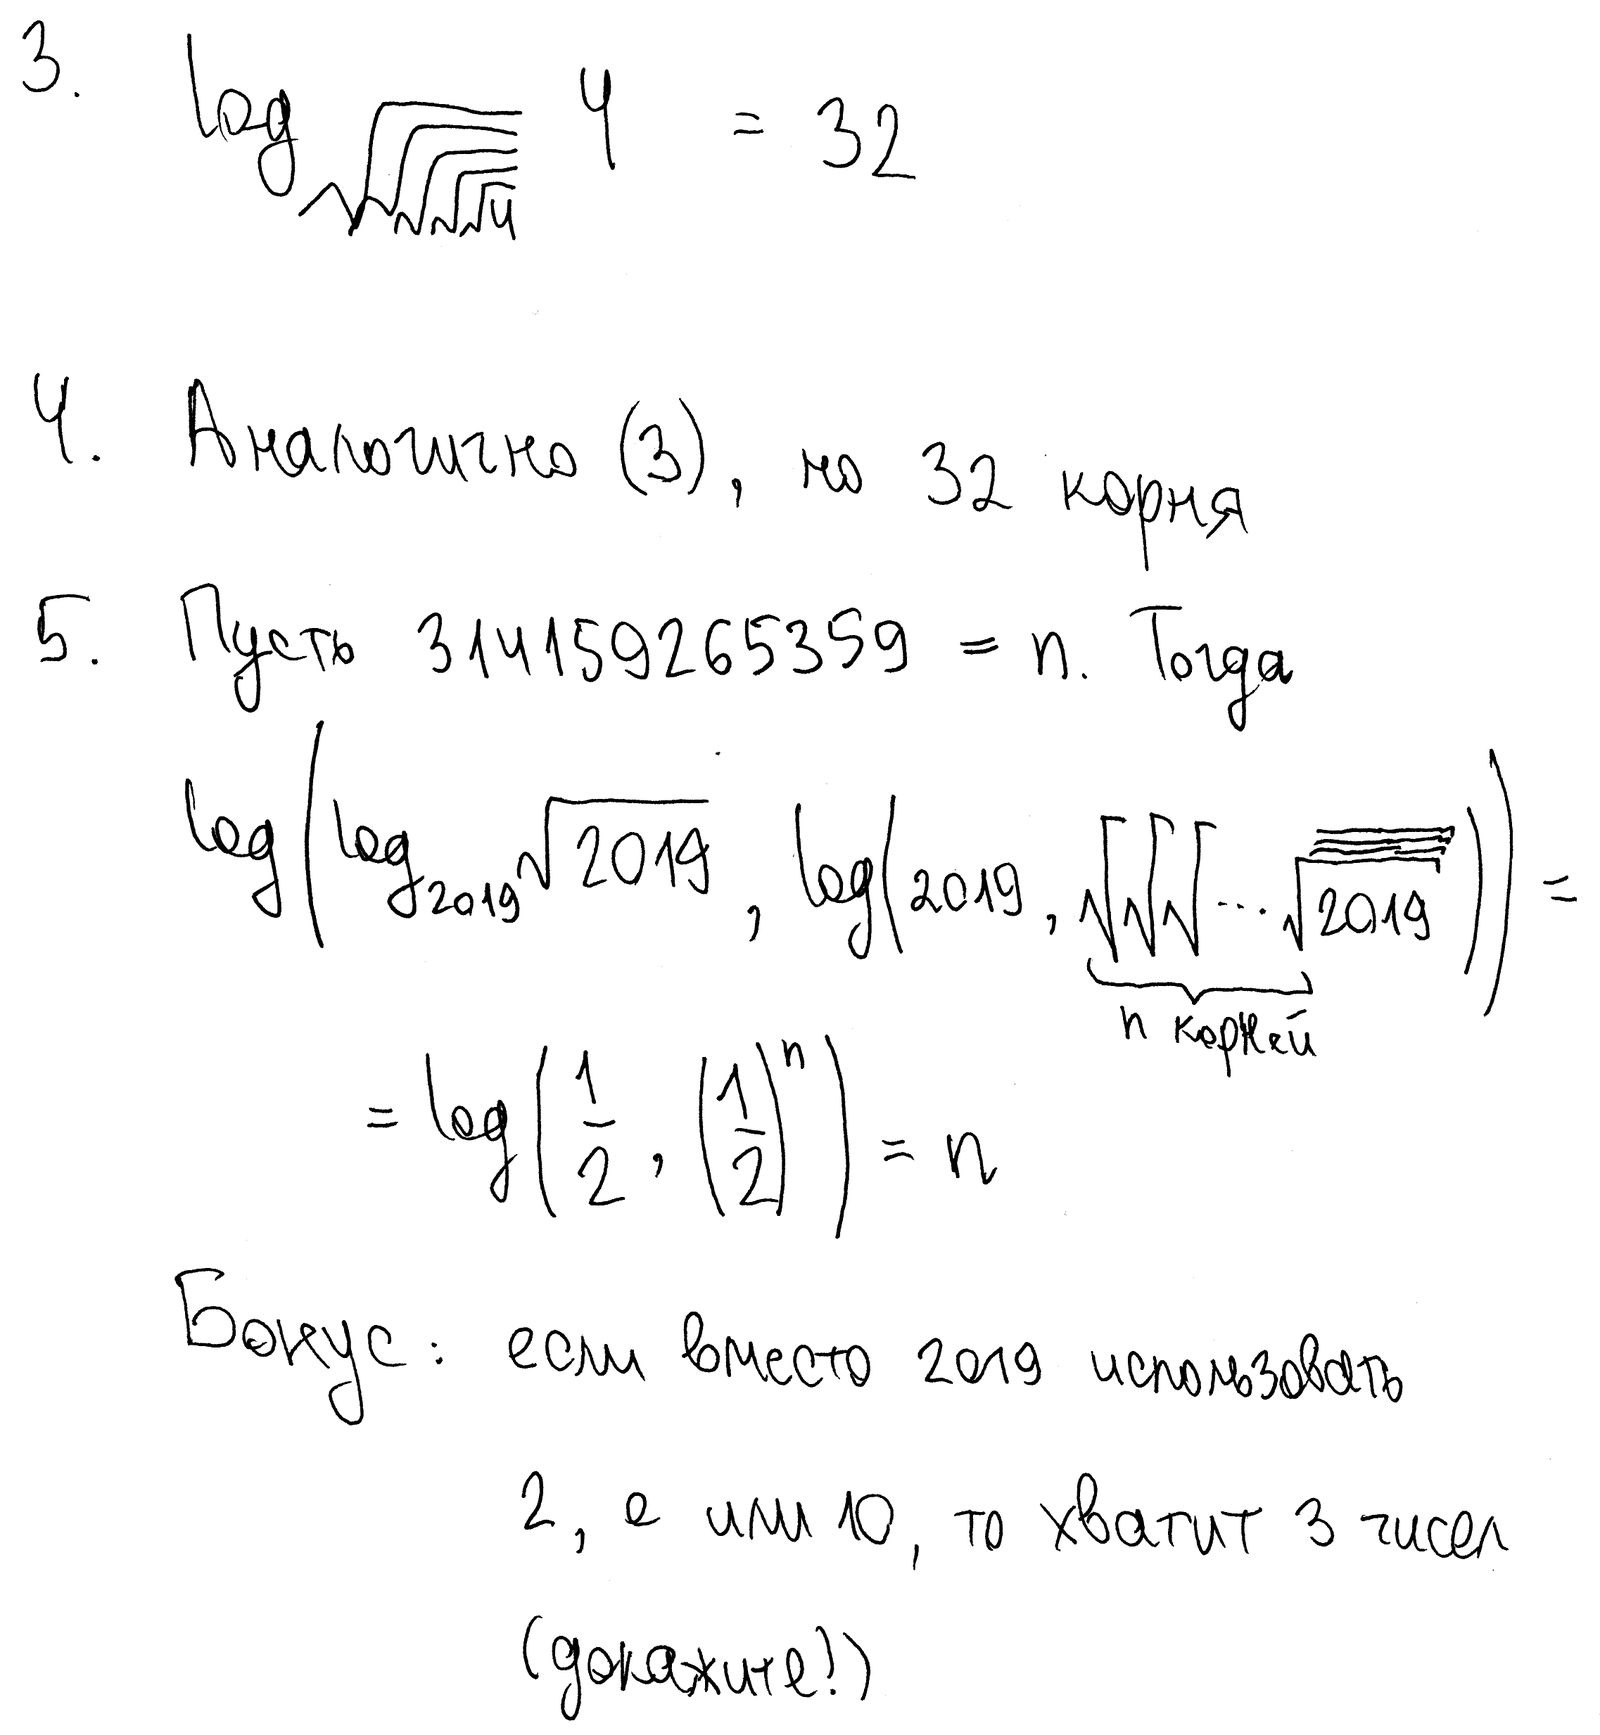 3. log_{√√√√√4} 4 = 32
4. Аналогично (3), но 32 корня
5. Пусть 314159265359 = n. Тогда
log(log_{2019}√2019, log(2019, √√√...√2019)) =
n корней
= log(1/2, (1/2)^n) = n
Бонус: если вместо 2019 использовать
2, e или 10, то хватит 3 чисел
(докажите!)